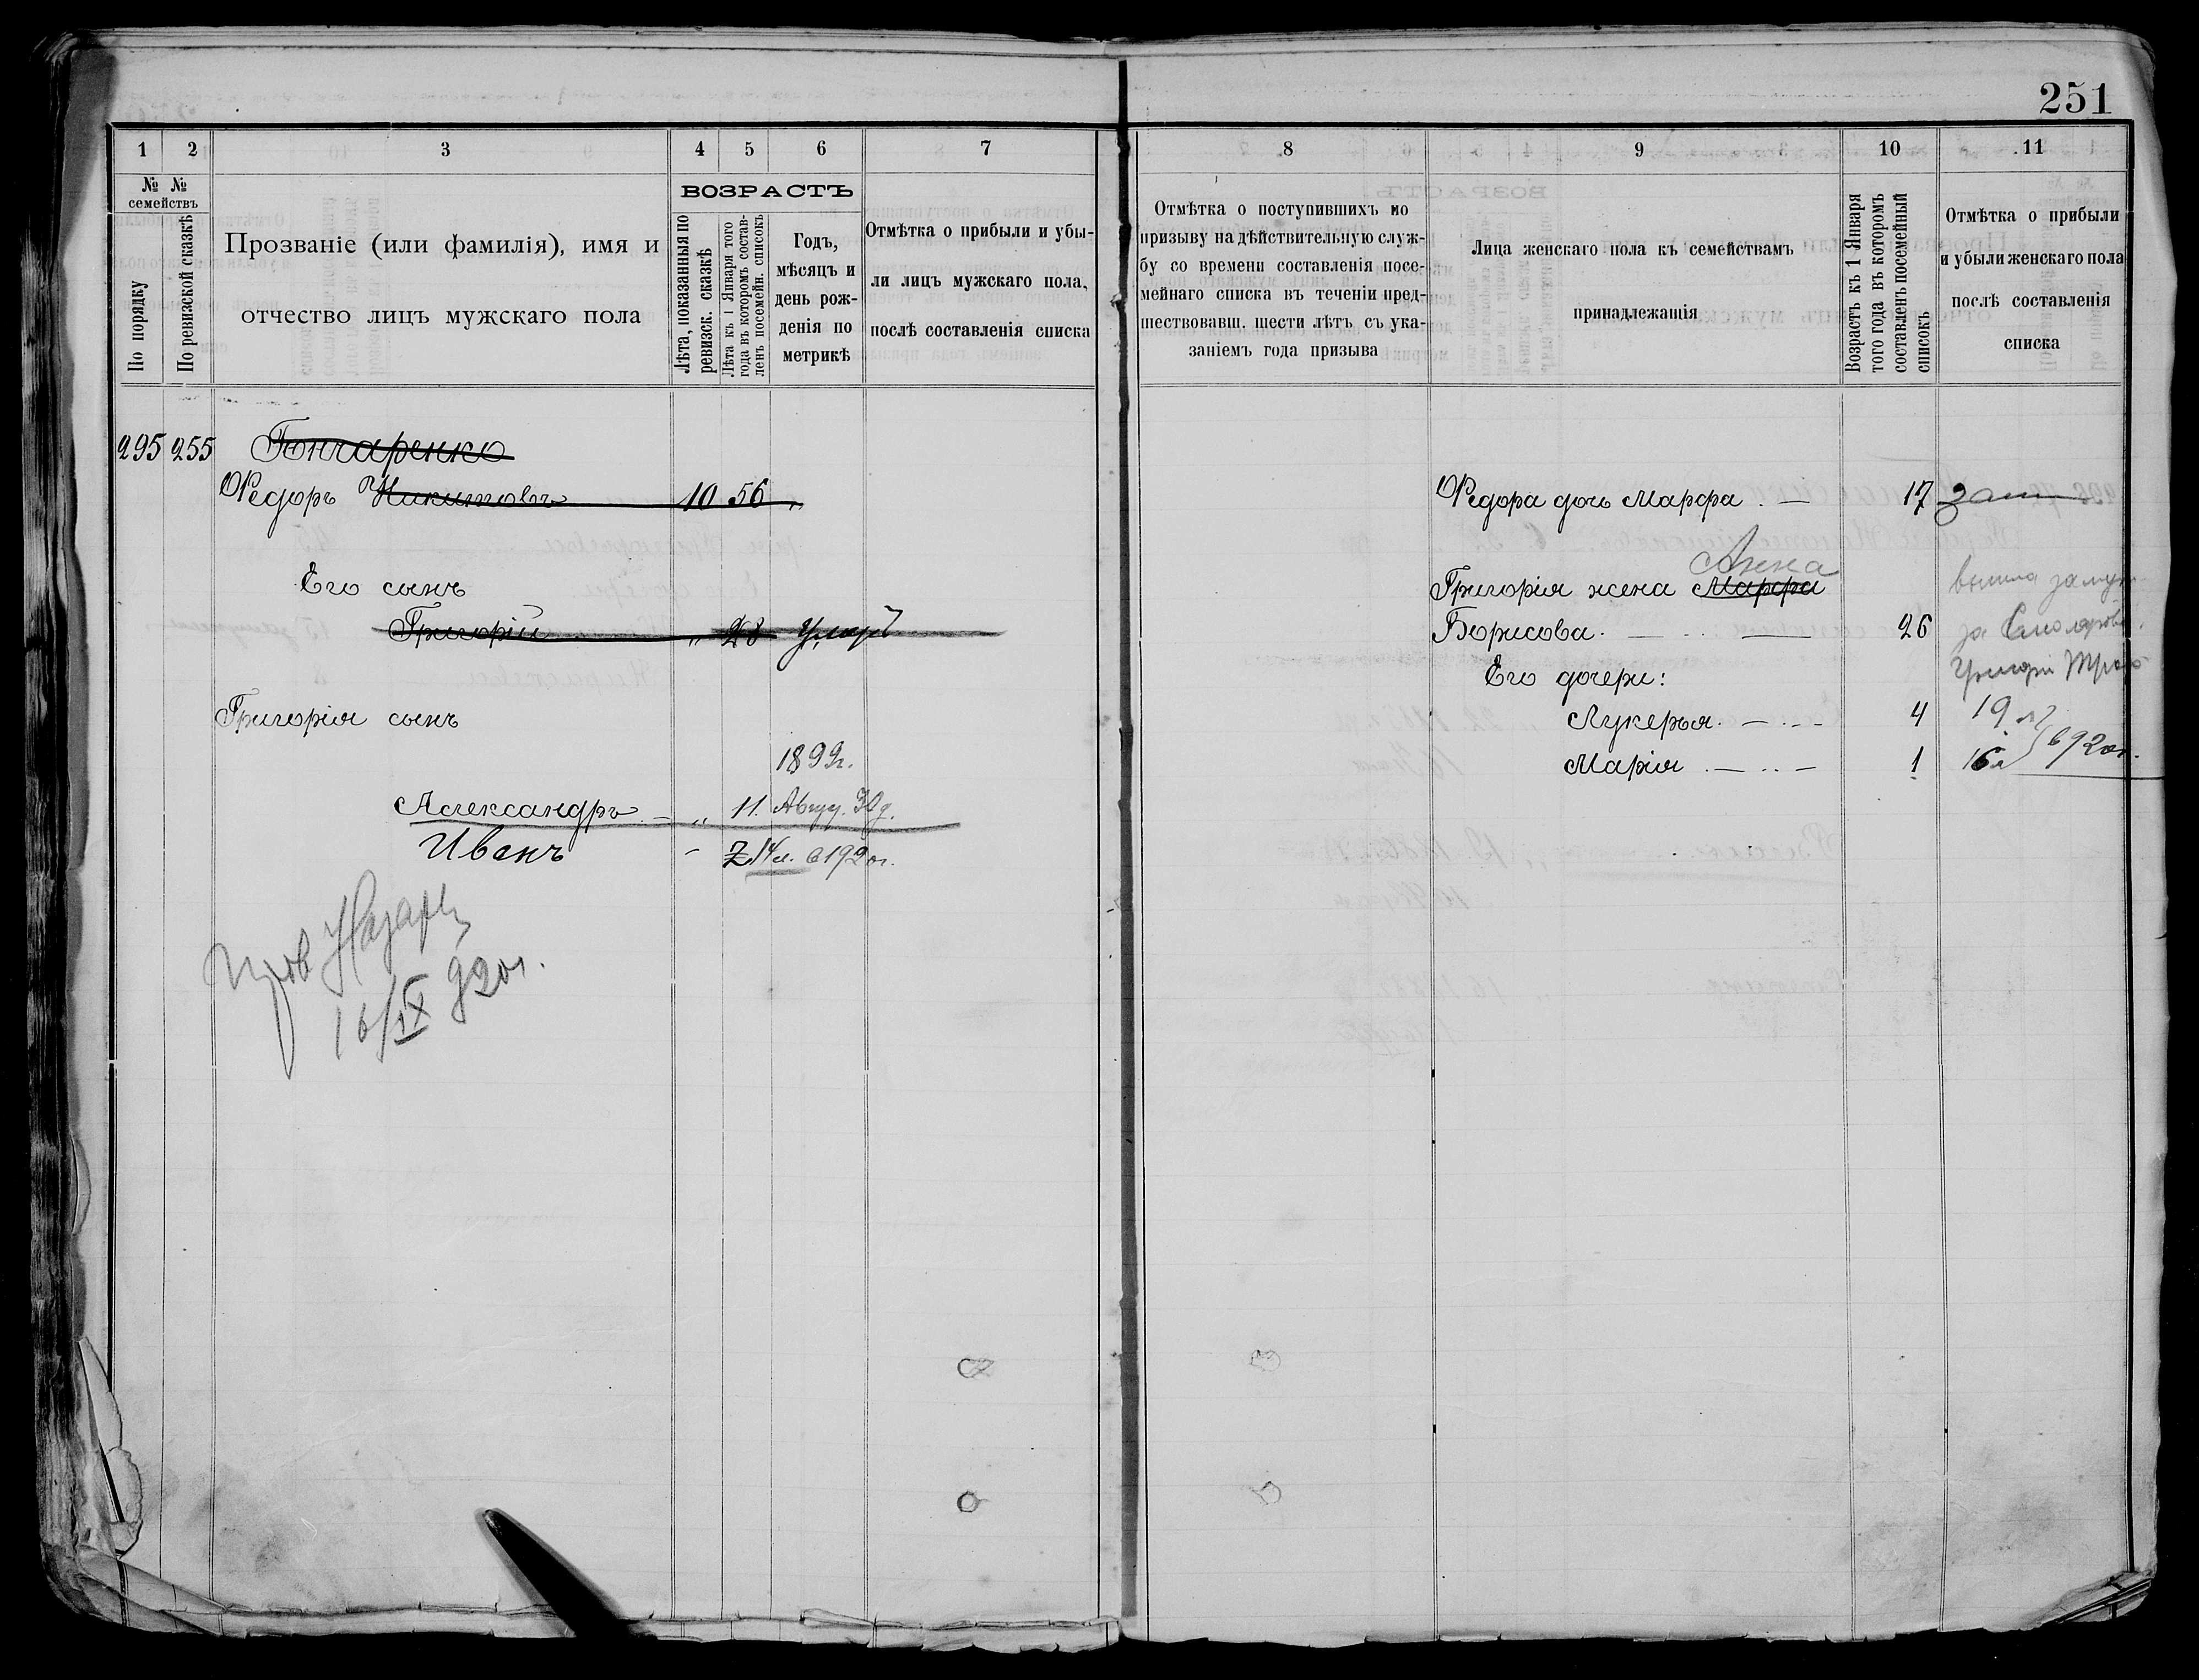 251
1 2 3 4 5 6 7
№ № семействъ
По порядку
По ревизской сказкѣ
Прозваніе (или фамилія), имя и
отчество лицъ мужскаго пола
ВОЗРАСТЪ
Лѣта, показанныя по
ревизск. сказкѣ
Лѣта къ 1 Января того
года въ которомъ состав-
ленъ посемейн. списокъ
Годъ,
мѣсяцъ и
день рож-
денія по
метрикѣ
Отмѣтка о прибыли и убы-
ли лицъ мужскаго пола,
послѣ составленія списка
295 255 Гончаренко
Федоръ Никитовъ 10 56 „
Его сынъ
Григорій „ 28 Умеръ
Григорія сынъ
1899г.
Александръ — „ 11. Авгу. 30 д.
Иванъ - 2 14 л. в 1920г.
16/IX 920г.
8 9 10 11
Отмѣтка о поступившихъ по
призыву на дѣйствительную служ-
бу со времени составленія посе-
мейнаго списка въ теченіи пред-
шествовавш. шести лѣтъ съ ука-
заніемъ года призыва
Лица женскаго пола къ семействамъ
принадлежащія
Возрастъ къ 1 Января
того года въ которомъ
составленъ посемейный
списокъ
Отмѣтка о прибыли
и убыли женскаго пола
послѣ составленія
списка
Федора дочь Марфа . — 17 зам
Анна
Григорія жена Марфа вышла замуж
Борисова. — 26 за
Его дочери:
Лукерья. — 4 19 л
Марія . — 1 16 л } в 920г.